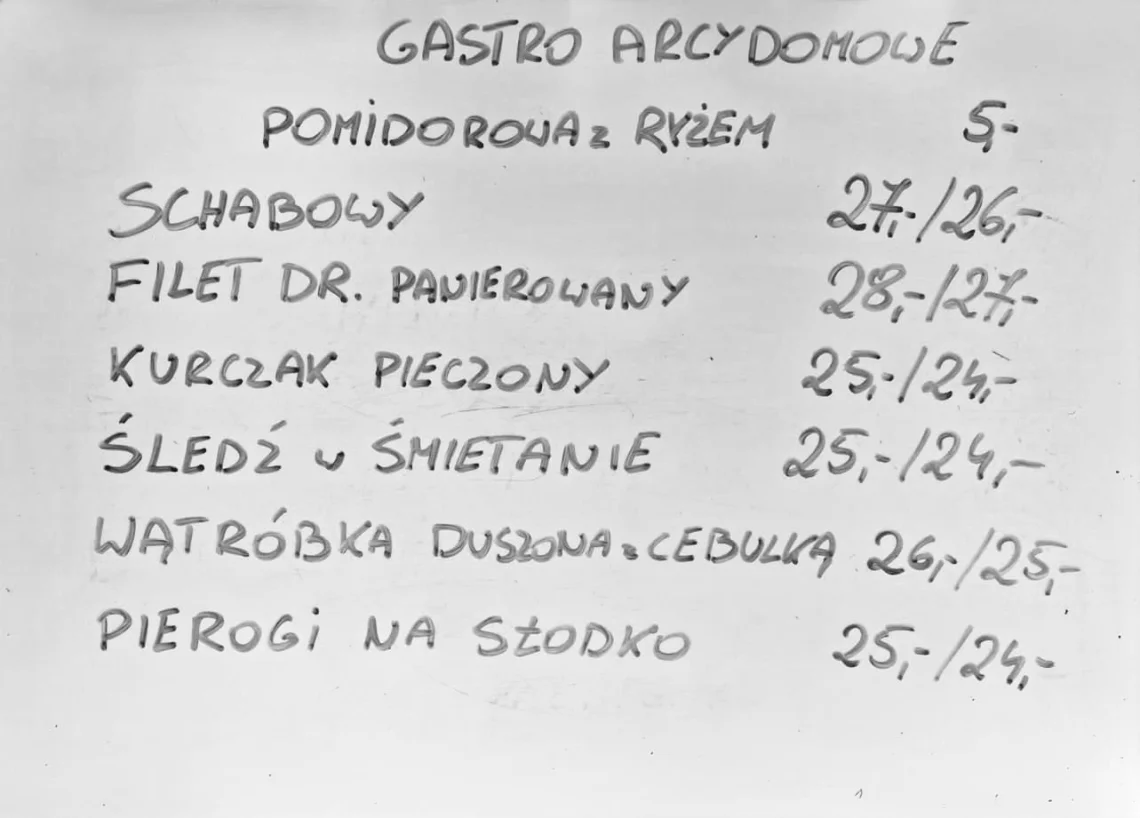 GASTRO ARCYDOMOWE
POMIDOROWA z RYŻEM 5,-
SCHABOWY 27,-/26,-
FILET DR. PANIEROWANY 28,-/27,-
KURCZAK PIECZONY 25,-/24,-
ŚLEDŹ w ŚMIETANIE 25,-/24,-
WĄTRÓBKA DUSZONA z CEBULKĄ 26,-/25,-
PIEROGI NA SŁODKO 25,-/24,-